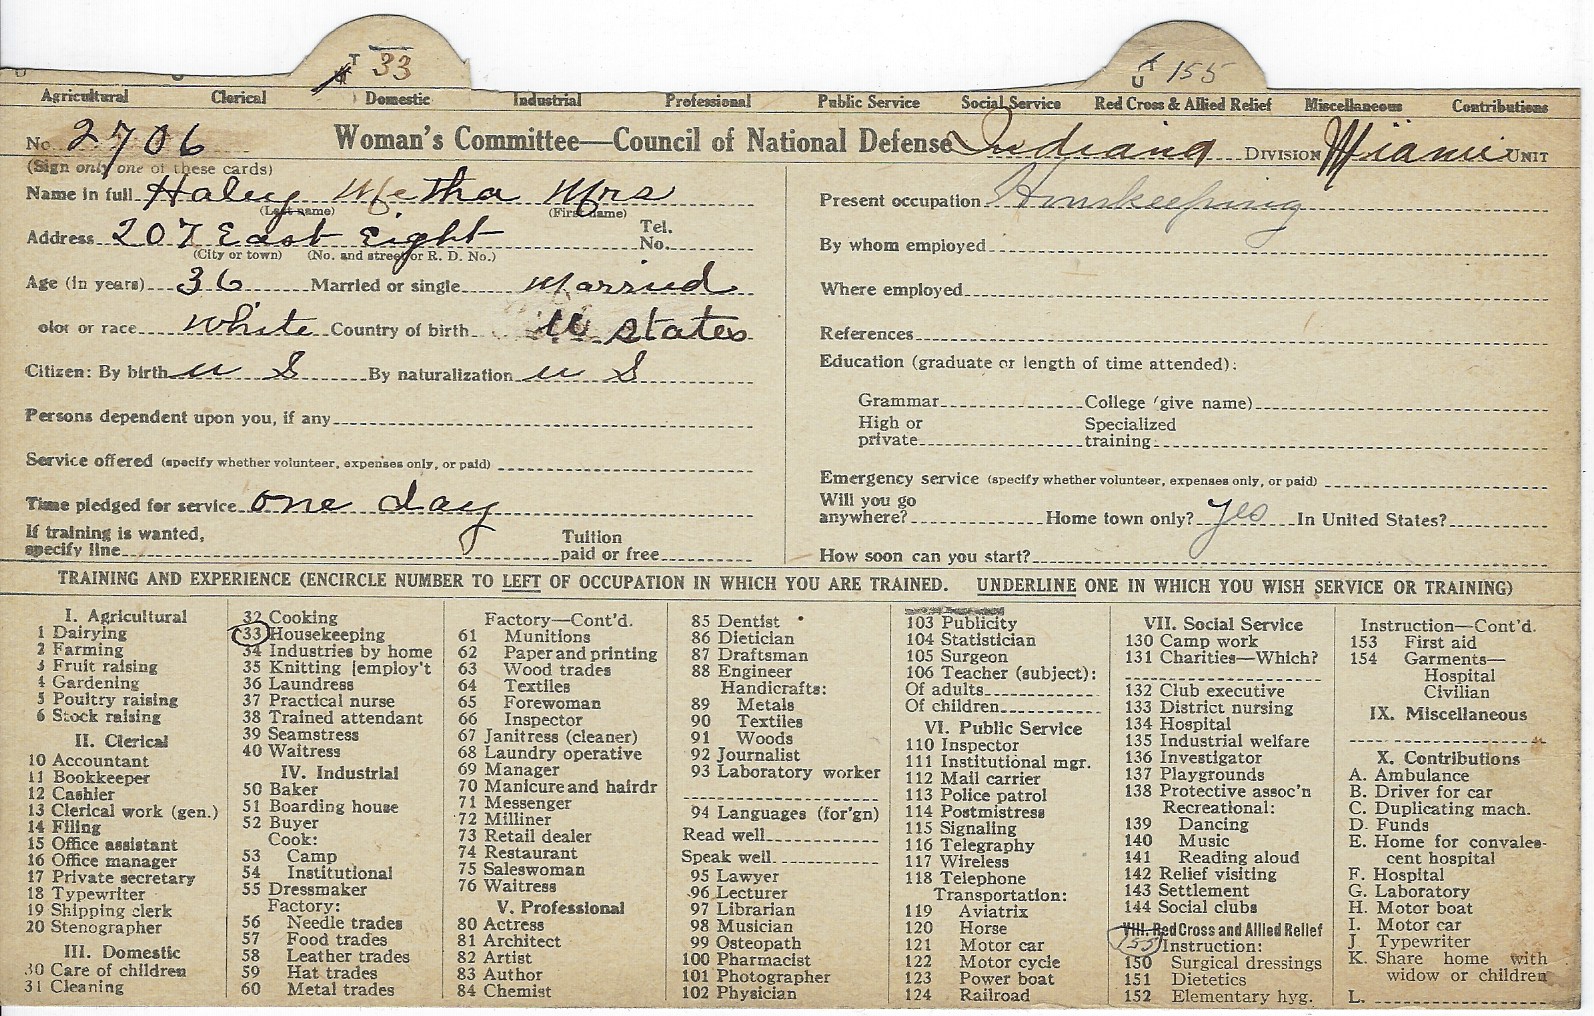 T 33
T U 155
Agricultural Clerical Domestic Industrial Professional Public Service Social Service Red Cross & Allied Relief Miscellaneous Contributions
No. 2706 Woman's Committee—Council of National Defense Indiana DIVISION Miami UNIT
(Sign only one of these cards)
Name in full Haley Metha Mrs
(Last name) (First name)
Address 207 East Eight Tel. No.
(City or town) (No. and street or R. D. No.)
Age (in years) 36 Married or single Married
olor or race White Country of birth U States
Citizen: By birth U S By naturalization U S
Persons dependent upon you, if any
Service offered (specify whether volunteer, expenses only, or paid)
Time pledged for service one day
If training is wanted, specify line Tuition paid or free
Present occupation Houskeeping
By whom employed
Where employed
References
Education (graduate or length of time attended):
Grammar College (give name)
High or private Specialized training
Emergency service (specify whether volunteer, expenses only, or paid)
Will you go anywhere? Home town only? yes In United States?
How soon can you start?
TRAINING AND EXPERIENCE (ENCIRCLE NUMBER TO LEFT OF OCCUPATION IN WHICH YOU ARE TRAINED. UNDERLINE ONE IN WHICH YOU WISH SERVICE OR TRAINING)
I. Agricultural
1 Dairying
2 Farming
3 Fruit raising
4 Gardening
5 Poultry raising
6 Stock raising
II. Clerical
10 Accountant
11 Bookkeeper
12 Cashier
13 Clerical work (gen.)
14 Filing
15 Office assistant
16 Office manager
17 Private secretary
18 Typewriter
19 Shipping clerk
20 Stenographer
III. Domestic
30 Care of children
31 Cleaning
32 Cooking
33 Housekeeping
34 Industries by home
35 Knitting [employ't
36 Laundress
37 Practical nurse
38 Trained attendant
39 Seamstress
40 Waitress
IV. Industrial
50 Baker
51 Boarding house
52 Buyer
Cook:
53 Camp
54 Institutional
55 Dressmaker
Factory:
56 Needle trades
57 Food trades
58 Leather trades
59 Hat trades
60 Metal trades
Factory—Cont'd.
61 Munitions
62 Paper and printing
63 Wood trades
64 Textiles
65 Forewoman
66 Inspector
67 Janitress (cleaner)
68 Laundry operative
69 Manager
70 Manicure and hairdr
71 Messenger
72 Milliner
73 Retail dealer
74 Restaurant
75 Saleswoman
76 Waitress
V. Professional
80 Actress
81 Architect
82 Artist
83 Author
84 Chemist
85 Dentist
86 Dietician
87 Draftsman
88 Engineer
Handicrafts:
89 Metals
90 Textiles
91 Woods
92 Journalist
93 Laboratory worker
94 Languages (for'gn)
Read well
Speak well
95 Lawyer
96 Lecturer
97 Librarian
98 Musician
99 Osteopath
100 Pharmacist
101 Photographer
102 Physician
103 Publicity
104 Statistician
105 Surgeon
106 Teacher (subject):
Of adults
Of children
VI. Public Service
110 Inspector
111 Institutional mgr.
112 Mail carrier
113 Police patrol
114 Postmistress
115 Signaling
116 Telegraphy
117 Wireless
118 Telephone
Transportation:
119 Aviatrix
120 Horse
121 Motor car
122 Motor cycle
123 Power boat
124 Railroad
VII. Social Service
130 Camp work
131 Charities—Which?
132 Club executive
133 District nursing
134 Hospital
135 Industrial welfare
136 Investigator
137 Playgrounds
138 Protective assoc'n
Recreational:
139 Dancing
140 Music
141 Reading aloud
142 Relief visiting
143 Settlement
144 Social clubs
VIII. Red Cross and Allied Relief
155 Instruction:
150 Surgical dressings
151 Dietetics
152 Elementary hyg.
Instruction—Cont'd.
153 First aid
154 Garments—
Hospital
Civilian
IX. Miscellaneous
X. Contributions
A. Ambulance
B. Driver for car
C. Duplicating mach.
D. Funds
E. Home for convales-
cent hospital
F. Hospital
G. Laboratory
H. Motor boat
I. Motor car
J. Typewriter
K. Share home with
widow or children
L.